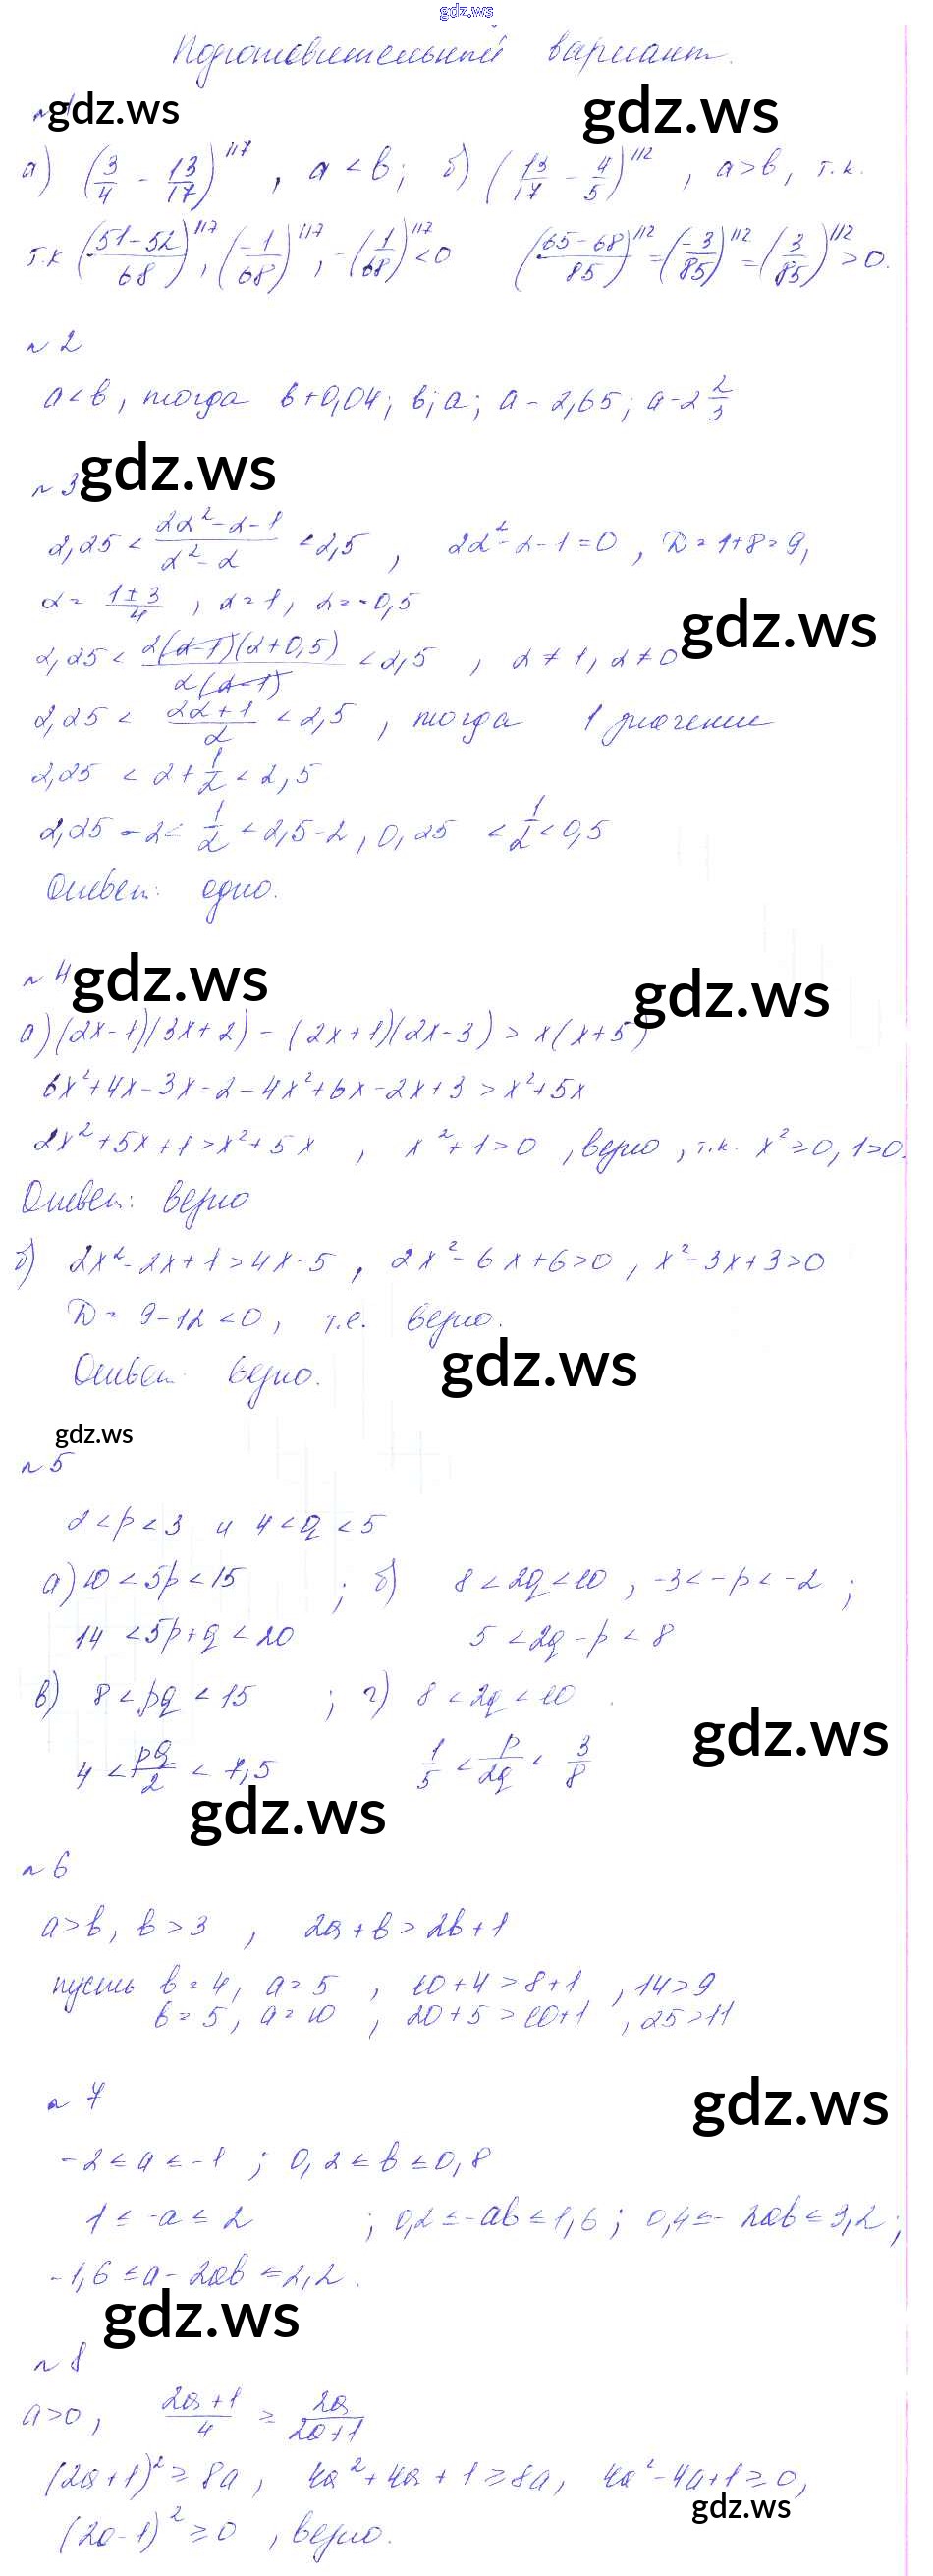 gdz.ws
Подготовительный вариант.
№ 1 gdz.ws gdz.ws
а) (3/4 - 13/17)^117, a < b; б) (13/17 - 4/5)^112, a > b, т.к.
т.к ((51-52)/68)^117, (-1/68)^117, -(1/68)^117 < 0 ((65-68)/85)^112 = (-3/85)^112 = (3/85)^112 > 0.
№ 2
a < b, тогда b+0,04; b; a; a - 2,65; a - 2 2/3
№ 3 gdz.ws
2,25 < (2α²-α-1)/(α²-α) < 2,5, 2α²-α-1=0, D=1+8=9,
α = (1±3)/4, α=1, α=-0,5
gdz.ws
2,25 < 2(α-1)(α+0,5)/(α(α-1)) < 2,5, α≠1, α≠0
2,25 < (2α+1)/α < 2,5, тогда 1 значение
2,25 < 2+1/α < 2,5
2,25-2 < 1/α < 2,5-2, 0,25 < 1/α < 0,5
Ответ: одно.
№ 4 gdz.ws gdz.ws
а) (2x-1)(3x+2) - (2x+1)(2x-3) > x(x+5)
6x²+4x-3x-2-4x²+6x-2x+3 > x²+5x
2x²+5x+1 > x²+5x, x²+1>0, верно, т.к. x²≥0, 1>0.
Ответ: верно
б) 2x²-2x+1 > 4x-5, 2x²-6x+6>0, x²-3x+3>0
D = 9-12 < 0, т.е. верно.
Ответ: верно.
gdz.ws
gdz.ws
№ 5
2 < p < 3 и 4 < q < 5
а) 10 < 5p < 15; б) 8 < 2q < 10, -3 < -p < -2;
14 < 5p+q < 20 5 < 2q-p < 8
в) 8 < pq < 15; г) 8 < 2q < 10.
gdz.ws
4 < pq/2 < 7,5 1/5 < p/2q < 3/8
gdz.ws
№ 6
a > b, b > 3, 2a+b > 2b+1
пусть b=4, a=5, 10+4 > 8+1, 14 > 9
b=5, a=10, 20+5 > 10+1, 25 > 11
№ 7 gdz.ws
-2 ≤ a ≤ -1; 0,2 ≤ b ≤ 0,8
1 ≤ -a ≤ 2; 0,2 ≤ -ab ≤ 1,6; 0,4 ≤ -2ab ≤ 3,2;
-1,6 ≤ a-2ab ≤ 2,2.
gdz.ws
№ 8
a > 0, (2a+1)/4 ≥ 2a/(2a+1)
(2a+1)² ≥ 8a, 4a²+4a+1 ≥ 8a, 4a²-4a+1 ≥ 0,
gdz.ws
(2a-1)² ≥ 0, верно.